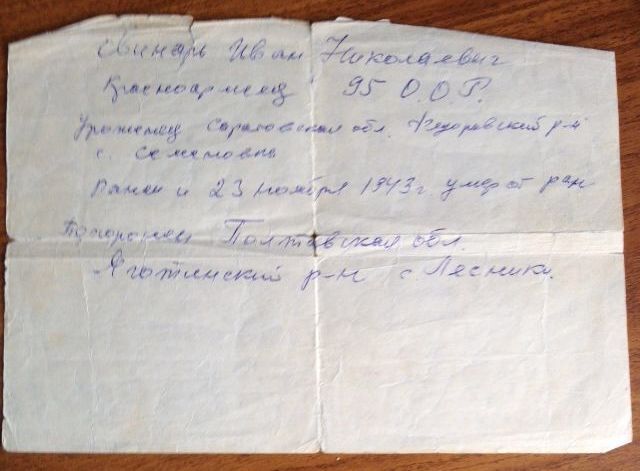 Свинарь Иван Николаевич
Красноармеец 95 О.О.Р.
Уроженец Саратовская обл. Федоровский р-н
с. Семеновка
Ранен и 23 ноября 1943 г. умер от ран
Похоронен Полтавская обл.
Яготинский р-н с Лесники.